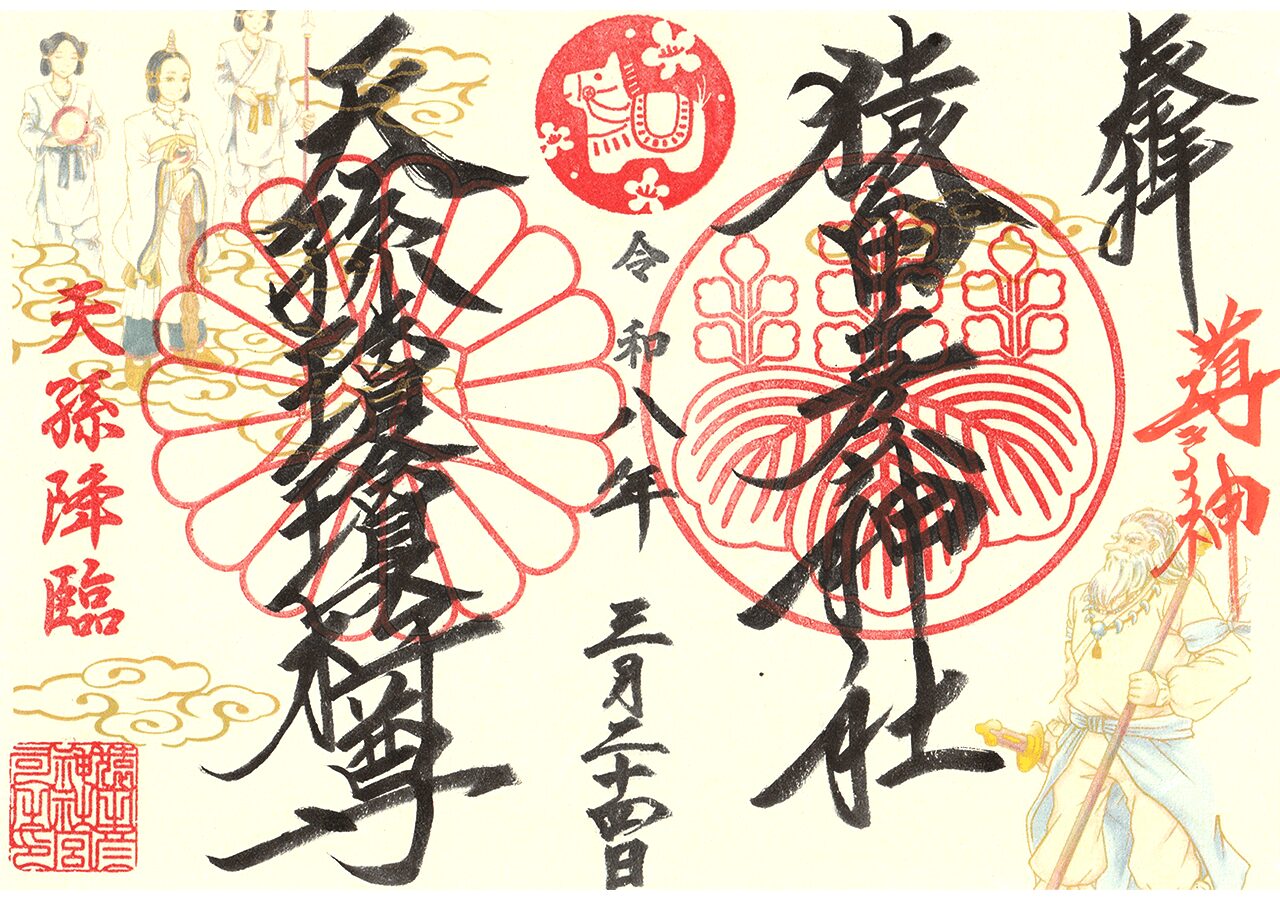 奉拝
導きの神
猿田彦神社
令和八年 三月二十四日
天孫瓊瓊杵尊
天孫降臨